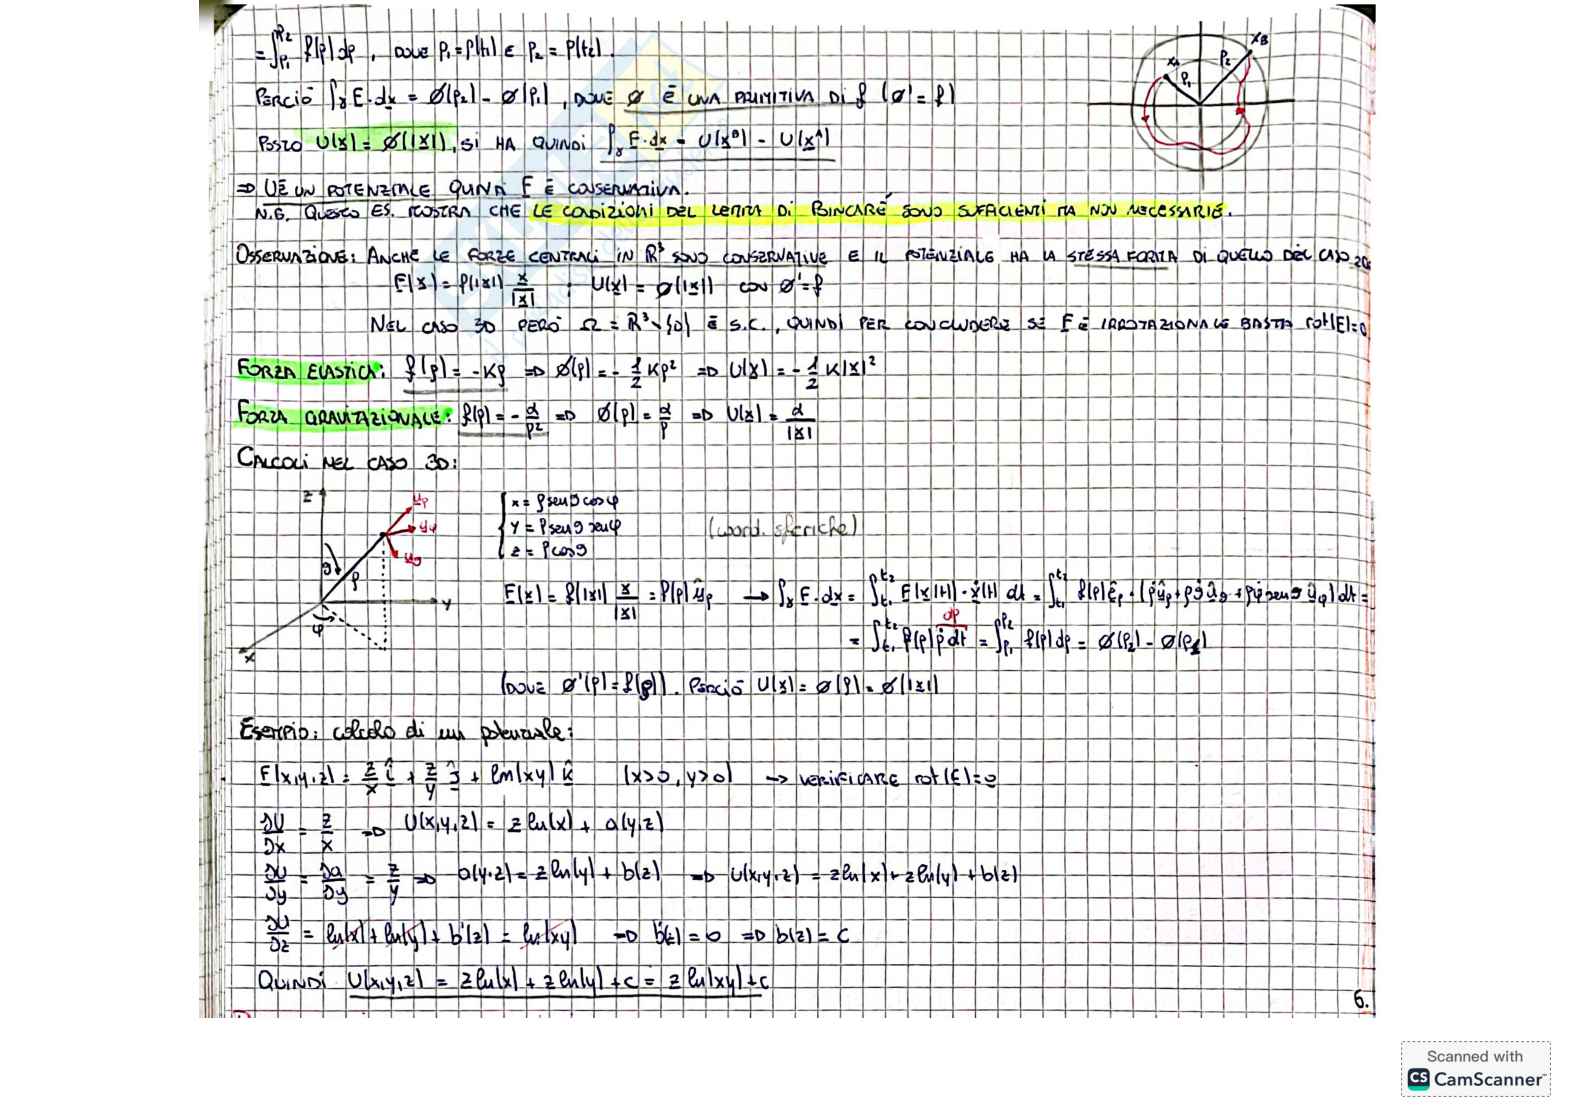 = ∫_{ρ₁}^{ρ₂} f(ρ) dρ , DOVE ρ₁ = ρ(t₁) E ρ₂ = ρ(t₂).
PERCIÒ ∫_γ F · dx = Ø(ρ₂) - Ø(ρ₁) , DOVE Ø È UNA PRIMITIVA DI f (Ø' = f)
POSTO U(x) = Ø(|x|), SI HA QUINDI ∫_γ F · dx = U(x^B) - U(x^A)
⇒ U È UN POTENZIALE QUINDI F È CONSERVATIVA.
N.B. QUESTO ES. MOSTRA CHE LE CONDIZIONI DEL LEMMA DI POINCARÉ SONO SUFFICIENTI MA NON NECESSARIE.
x_A
x_B
ρ₁
ρ₂
OSSERVAZIONE: ANCHE LE FORZE CENTRALI IN R³ SONO CONSERVATIVE E IL POTENZIALE HA LA STESSA FORMA DI QUELLO DEL CASO 2D
F(x) = f(|x|) x/|x| ; U(x) = Ø(|x|) CON Ø' = f
NEL CASO 3D PERÒ Ω = R³ \ {0} È S.C., QUINDI PER CONCLUDERE SE F È IRROTAZIONALE BASTA rot(F)=0
FORZA ELASTICA: f(ρ) = -Kρ ⇒ Ø(ρ) = - 1/2 Kρ² ⇒ U(x) = - 1/2 K|x|²
FORZA GRAVITAZIONALE: f(ρ) = - α/ρ² ⇒ Ø(ρ) = α/ρ ⇒ U(x) = α/|x|
CALCOLI NEL CASO 3D:
z
u_ρ
u_φ
u_ϑ
ϑ
ρ
y
φ
x
x = ρ sen ϑ cos φ
y = ρ sen ϑ sen φ
z = ρ cos ϑ
(coord. sferiche)
F(x) = f(|x|) x/|x| = f(ρ) û_ρ → ∫_γ F · dx = ∫_{t₁}^{t₂} F(x(t)) · ẋ(t) dt = ∫_{t₁}^{t₂} f(ρ) ê_ρ · (ρ̇ û_ρ + ρϑ̇ û_ϑ + ρφ̇ sen ϑ û_φ) dt =
dρ
= ∫_{t₁}^{t₂} f(ρ) ρ̇ dt = ∫_{ρ₁}^{ρ₂} f(ρ) dρ = Ø(ρ₂) - Ø(ρ₁)
(DOVE Ø'(ρ) = f(ρ)). PERCIÒ U(x) = Ø(ρ) = Ø(|x|)
ESEMPIO: calcolo di un potenziale:
F(x,y,z) = z/x î + z/y ĵ + ln(xy) k̂ (x>0, y>0) → VERIFICARE rot(F)=0
∂U/∂x = z/x ⇒ U(x,y,z) = z ln(x) + a(y,z)
∂U/∂y = ∂a/∂y = z/y ⇒ a(y,z) = z ln(y) + b(z) ⇒ U(x,y,z) = z ln(x) + z ln(y) + b(z)
∂U/∂z = ln(x) + ln(y) + b'(z) = ln(xy) ⇒ b'(z) = 0 ⇒ b(z) = C
QUINDI U(x,y,z) = z ln(x) + z ln(y) + C = z ln(xy) + C
6.
Scanned with
CS CamScanner